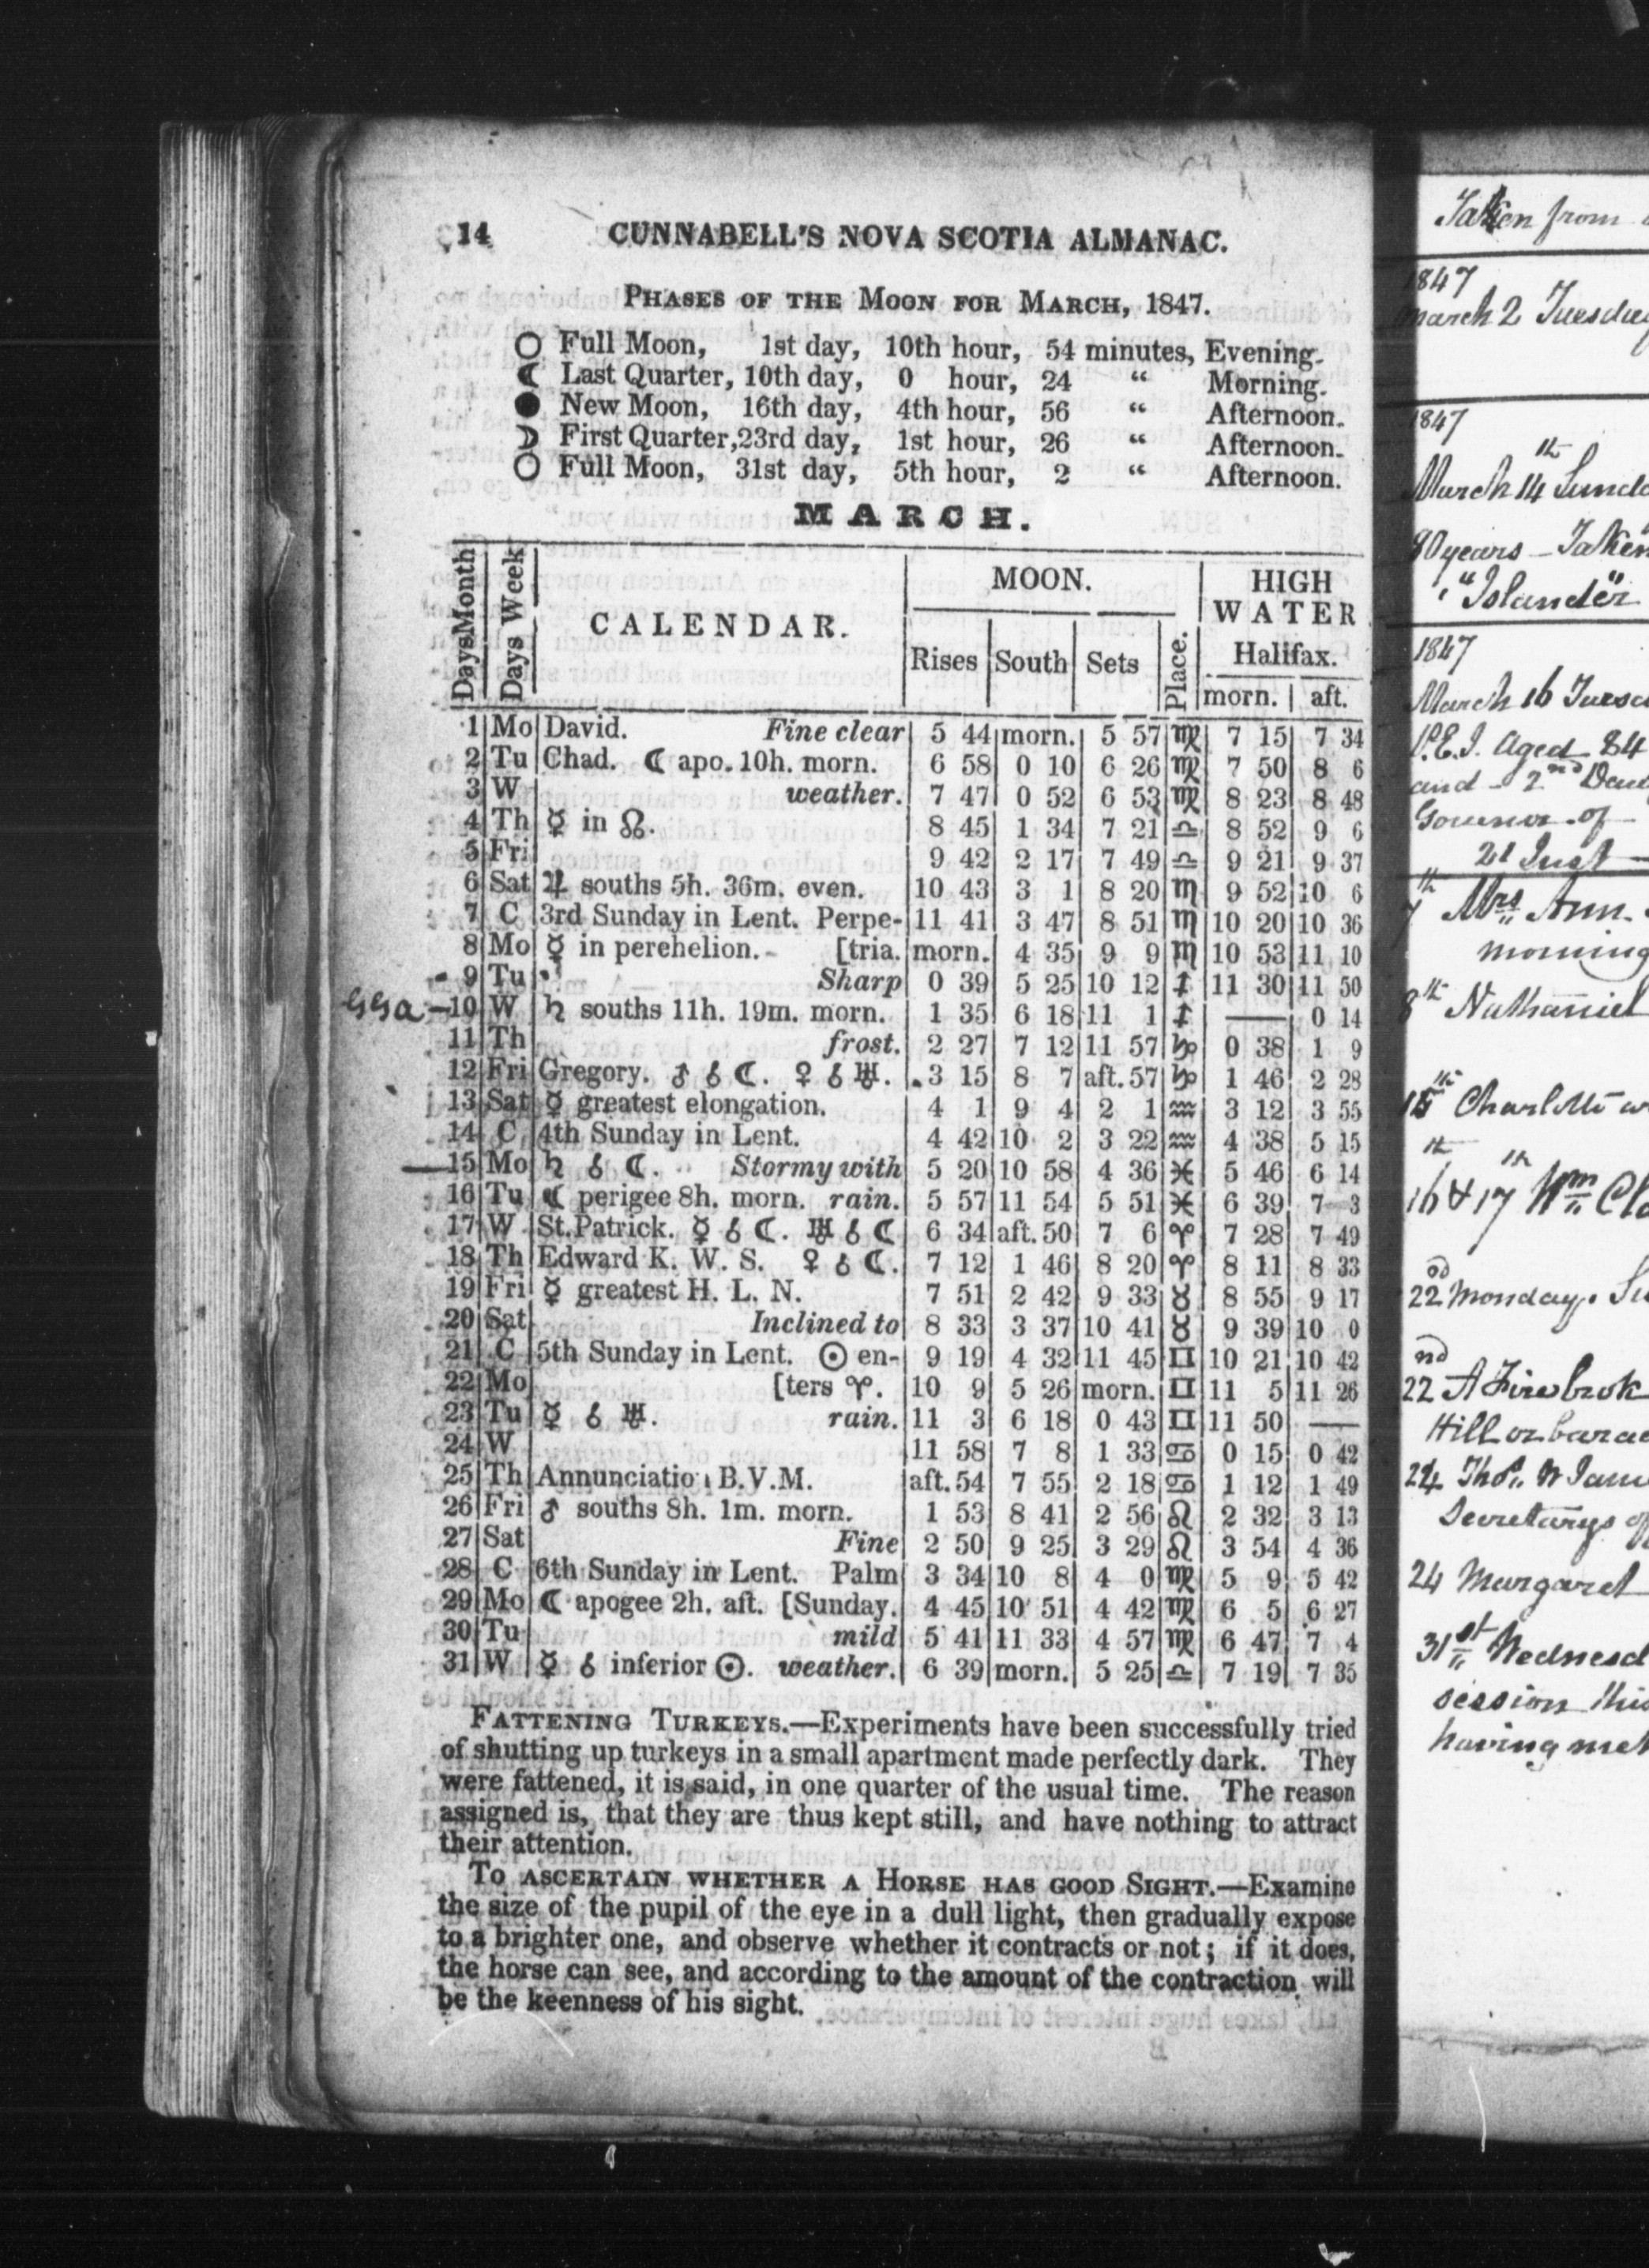 14 CUNNABELL'S NOVA SCOTIA ALMANAC.
PHASES OF THE MOON FOR MARCH, 1847.
○ Full Moon, 1st day, 10th hour, 54 minutes, Evening.
☾ Last Quarter, 10th day, 0 hour, 24 “ Morning.
● New Moon, 16th day, 4th hour, 56 “ Afternoon.
☽ First Quarter, 23rd day, 1st hour, 26 “ Afternoon.
○ Full Moon, 31st day, 5th hour, 2 “ Afternoon.
MARCH.
Days Month Days Week CALENDAR. MOON. HIGH WATER
Rises South Sets Place. Halifax.
morn. aft.
1 Mo David. Fine clear 5 44 morn. 5 57 ♍ 7 15 7 34
2 Tu Chad. ☾ apo. 10h. morn. 6 58 0 10 6 26 ♍ 7 50 8 6
3 W weather. 7 47 0 52 6 53 ♍ 8 23 8 48
4 Th ☿ in ☊. 8 45 1 34 7 21 ♎ 8 52 9 6
5 Fri 9 42 2 17 7 49 ♎ 9 21 9 37
6 Sat ♃ souths 5h. 36m. even. 10 43 3 1 8 20 ♏ 9 52 10 6
7 C 3rd Sunday in Lent. Perpe- 11 41 3 47 8 51 ♏ 10 20 10 36
8 Mo ☿ in perehelion. [tria. morn. 4 35 9 9 ♏ 10 53 11 10
9 Tu Sharp 0 39 5 25 10 12 ♐ 11 30 11 50
10 W ♄ souths 11h. 19m. morn. 1 35 6 18 11 1 ♐ — 0 14
11 Th frost. 2 27 7 12 11 57 ♑ 0 38 1 9
12 Fri Gregory. ♂ ☌ ☾. ♀ ☌ ♅. 3 15 8 7 aft. 57 ♑ 1 46 2 28
13 Sat ☿ greatest elongation. 4 1 9 4 2 1 ♒ 3 12 3 55
14 C 4th Sunday in Lent. 4 42 10 2 3 22 ♒ 4 38 5 15
15 Mo ♄ ☌ ☾. Stormy with 5 20 10 58 4 36 ♓ 5 46 6 14
16 Tu ☾ perigee 8h. morn. rain. 5 57 11 54 5 51 ♓ 6 39 7 3
17 W St. Patrick. ☿ ☌ ☾. ♅ ☌ ☾ 6 34 aft. 50 7 6 ♈ 7 28 7 49
18 Th Edward K. W. S. ♀ ☌ ☾. 7 12 1 46 8 20 ♈ 8 11 8 33
19 Fri ☿ greatest H. L. N. 7 51 2 42 9 33 ♉ 8 55 9 17
20 Sat Inclined to 8 33 3 37 10 41 ♉ 9 39 10 0
21 C 5th Sunday in Lent. ☉ en- 9 19 4 32 11 45 ♊ 10 21 10 42
22 Mo [ters ♈. 10 9 5 26 morn. ♊ 11 5 11 26
23 Tu ☿ ☌ ♅. rain. 11 3 6 18 0 43 ♊ 11 50 —
24 W 11 58 7 8 1 33 ♋ 0 15 0 42
25 Th Annunciatio B.V.M. aft. 54 7 55 2 18 ♋ 1 12 1 49
26 Fri ♂ souths 8h. 1m. morn. 1 53 8 41 2 56 ♌ 2 32 3 13
27 Sat Fine 2 50 9 25 3 29 ♌ 3 54 4 36
28 C 6th Sunday in Lent. Palm 3 34 10 8 4 0 ♍ 5 9 5 42
29 Mo ☾ apogee 2h. aft. [Sunday. 4 45 10 51 4 42 ♍ 6 5 6 27
30 Tu mild 5 41 11 33 4 57 ♍ 6 47 7 4
31 W ☿ ☌ inferior ☉. weather. 6 39 morn. 5 25 ♎ 7 19 7 35
FATTENING TURKEYS.—Experiments have been successfully tried
of shutting up turkeys in a small apartment made perfectly dark. They
were fattened, it is said, in one quarter of the usual time. The reason
assigned is, that they are thus kept still, and have nothing to attract
their attention.
TO ASCERTAIN WHETHER A HORSE HAS GOOD SIGHT.—Examine
the size of the pupil of the eye in a dull light, then gradually expose
to a brighter one, and observe whether it contracts or not; if it does,
the horse can see, and according to the amount of the contraction will
be the keenness of his sight.
Taken from
1847
March 2 Tuesday
1847
March 14th Sunda
80 years - Taken
"Islander"
1847
March 16 Tuesd
P.E.I. aged 84
and - 2nd Dau
Governor of
21 Inst
7th Mrs Ann
morning
8th Nathaniel
15th Charlotte
16th & 17th Wm Cla
22nd Monday.
22nd A Fire brok
Hill or barac
24 Thos.
Secretarys of
24 Margaret
31st Wednesd
session this
having met